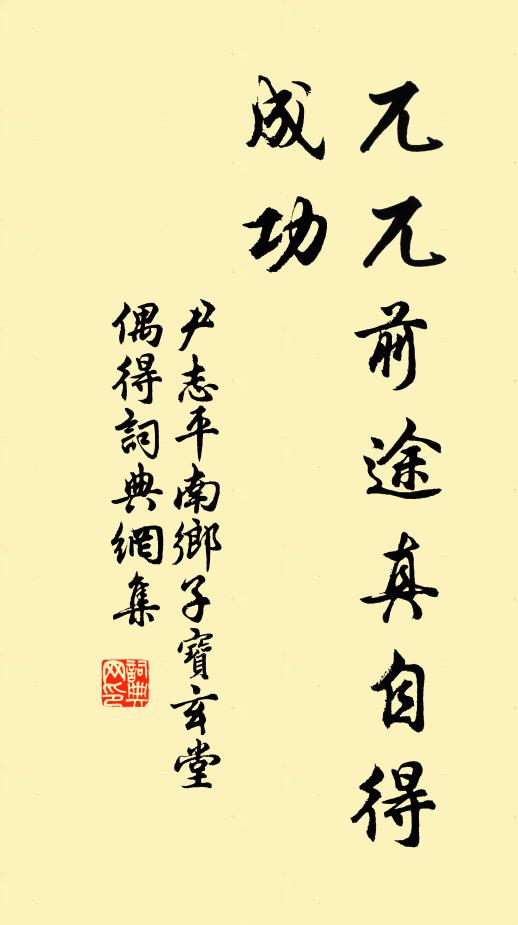 兀兀前途真自得
成功
尹志平南鄉子寶玄堂
偶得詞典網集
詞典
网印